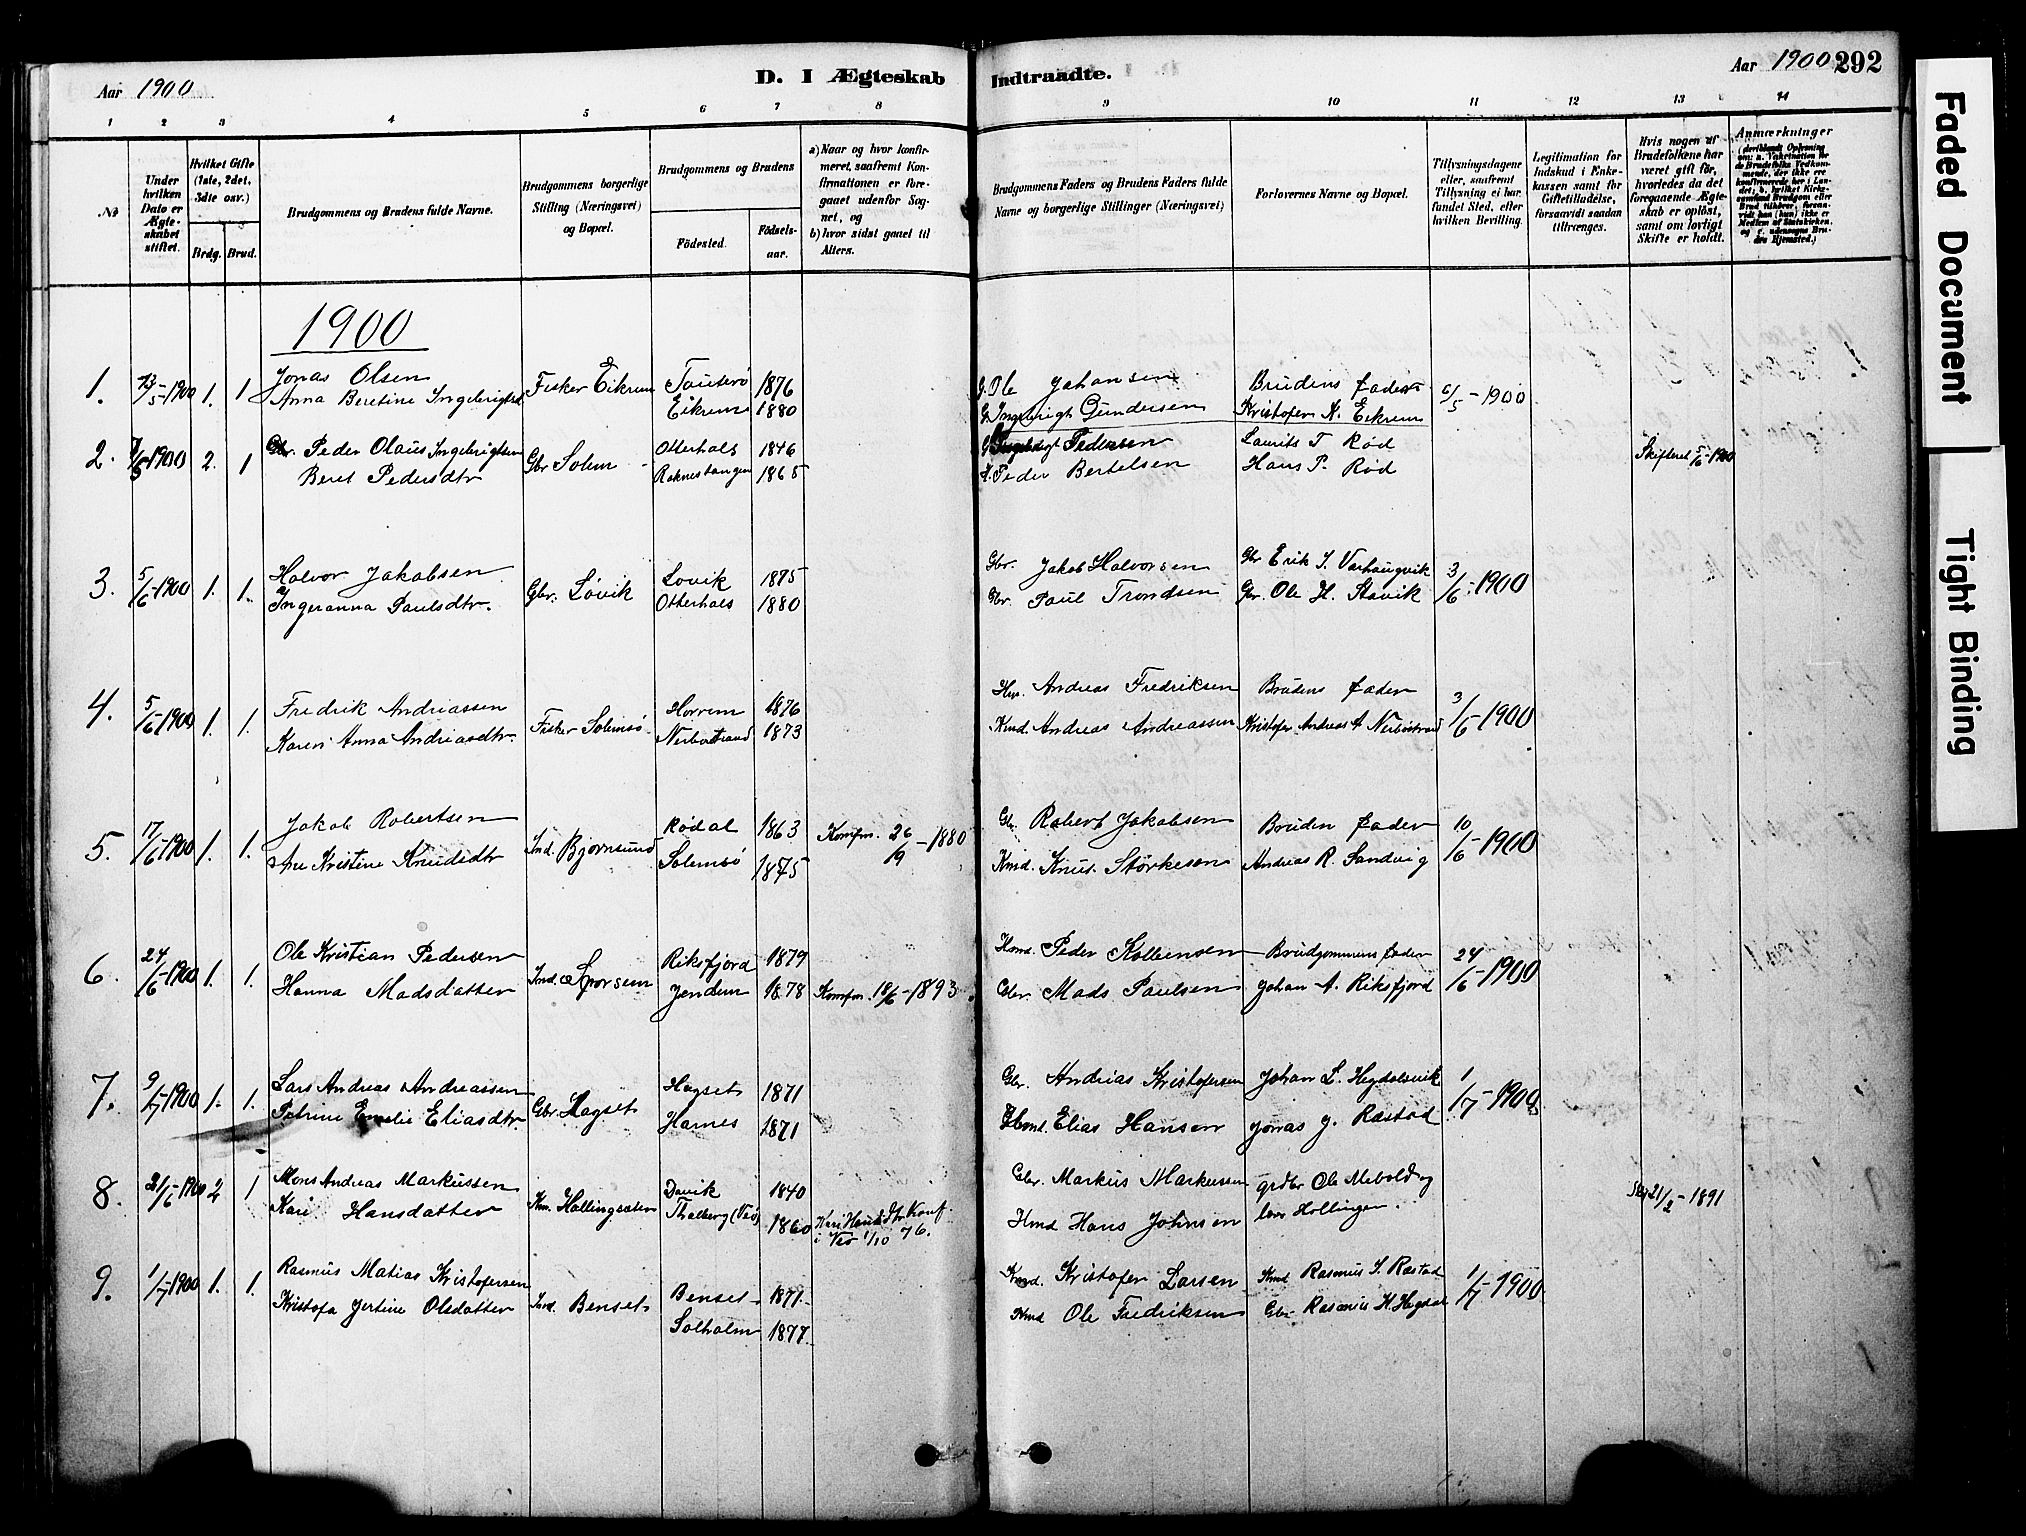 Aar 1900
D. I Ægteskab Indtraadte.
Aar 1900 292
1 2 3 4 5 6 7 8 9 10 11 12 13 14
№
Under hvilken Dato er Ægteskabet stiftet.
Hvilket Gifte (1ste, 2det, 3die osv.)
Brdg. Brud.
Brudgommens og Brudens fulde Navne.
Brudgommens borgerlige Stilling (Næringsvei) og Bopæl.
Brudgommens og Brudens
Födested.
Födselsaar.
a) Naar og hvor konfirmeret, saafremt Konfirmationen er foregaaet udenfor Sognet, og
b) hvor sidst gaaet til Alters.
Brudgommens Faders og Brudens Faders fulde Navne og borgerlige Stillinger (Næringsvei)
Forlovernes Navne og Bopæl.
Tillysningsdagene eller, saafremt Tillysning ei har fundet Sted, efter hvilken Bevilling.
Legitimation for Indskud i Enkekassen samt for Giftetilladelse, forsaavidt saadan tiltrænges.
Hvis nogen af Brudefolkene har været gift før, hvorledes da det foregaaende Ægteskab er opløst, samt om lovligt Skifte er holdt.
Anmærkninger
1900
1. 13/5-1900 1. 1 Jonas Olsen Fisker Eikrem Tauterö 1876 G. Ole Johansen Brudens fader 6/5-1900
Anna Beretine Ingebrigtsd Eikrem 1880 G Ingebrigt Gundersen Kristofer K. Eikrem
2. 7/5-1900 2. 1 Gbr. Peder Olaus Ingebrigtsen Gbr Solem Otterhals 1846 Pedersen Laurits T Rød Skifteret 5/5-1900
Beret Pedersdtr Raknestangen 1865 Peder Bertelsen Hans P. Rød
3. 5/6-1900 1. 1. Halvor Jakobsen Gbr. Løvik Lovik 1875 Gbr. Jakob Halvorsen Gbr Erik I. Varhaugvik 3/6-1900
Ingeranna Paulsdtr. Otterhals 1880 Gbr. Paul Trondsen Gbr. Ole H. Stavik
4. 5/6-1900 1. 1. Fredrik Andreassen Fisker Solemsö Horrem 1876 Andreas Fredriksen Brudens fader 3/6-1900
Karen Anna Andreasdtr. Nerbøstrand 1873 Kmd. Andreas Andreassen Kristofer Andreas A Nerbøstrand
5. 17/6-1900 1. 1. Jakob Robertsen Ind. Bjørnsund Rødal 1863 Konfm. 26/9-1880 Gbr. Robert Jakobsen Bruden fader 10/6-1900
Ane Kristine Knudsdtr Solemsö 1875 Kmd. Knut Størkesen Andreas R. Sandvig
6. 24/6-1900 1. 1. Ole Kristian Pedersen Ind. Sporsem Riksfjord 1879 Hmd Peder Kolbensen Brudgommens fader 24/6-1900
Hanna Madsdatter Jendem 1878 Konfm. 18/6-1893. Gbr. Mads Paulsen Johan A. Riksfjord
7. 9/7-1900 1. 1. Lars Andreas Andreassen Gbr. Hagset Hagset 1871 Gbr. Andreas Kristofersen Johan L. Hegdalsvik 1/7-1900
Petrine Emelie Eliasdtr. Harnes 1871 Hmd. Elias Hansen Jonas J. Rastad
8. 21/6-1900 2 1 Mons Andreas Markussen Km. Hollingsæter Davik 1840 Gbr. Markus Markussen grdbr Ole Mebold og Skj 21/2-1891
Kari Hansdatter Thalberg (Veö) 1860 Kari Hansdtr Konf. i Veø 1/10 76. Hmd Hans Johnsen lens Hollingen.
9. 1/7-1900 1. 1. Rasmus Matias Kristofersen Ind. Benset Benset 1877 Kmd. Kristofer Larsen Kmd Rasmus I. Rastad 1/7-1900
Kristofa Jertine Olsdatter Solholm 1877 Hmd Ole Fredriksen Gbr Rasmus K Hegdal
Faded Document
Tight Binding